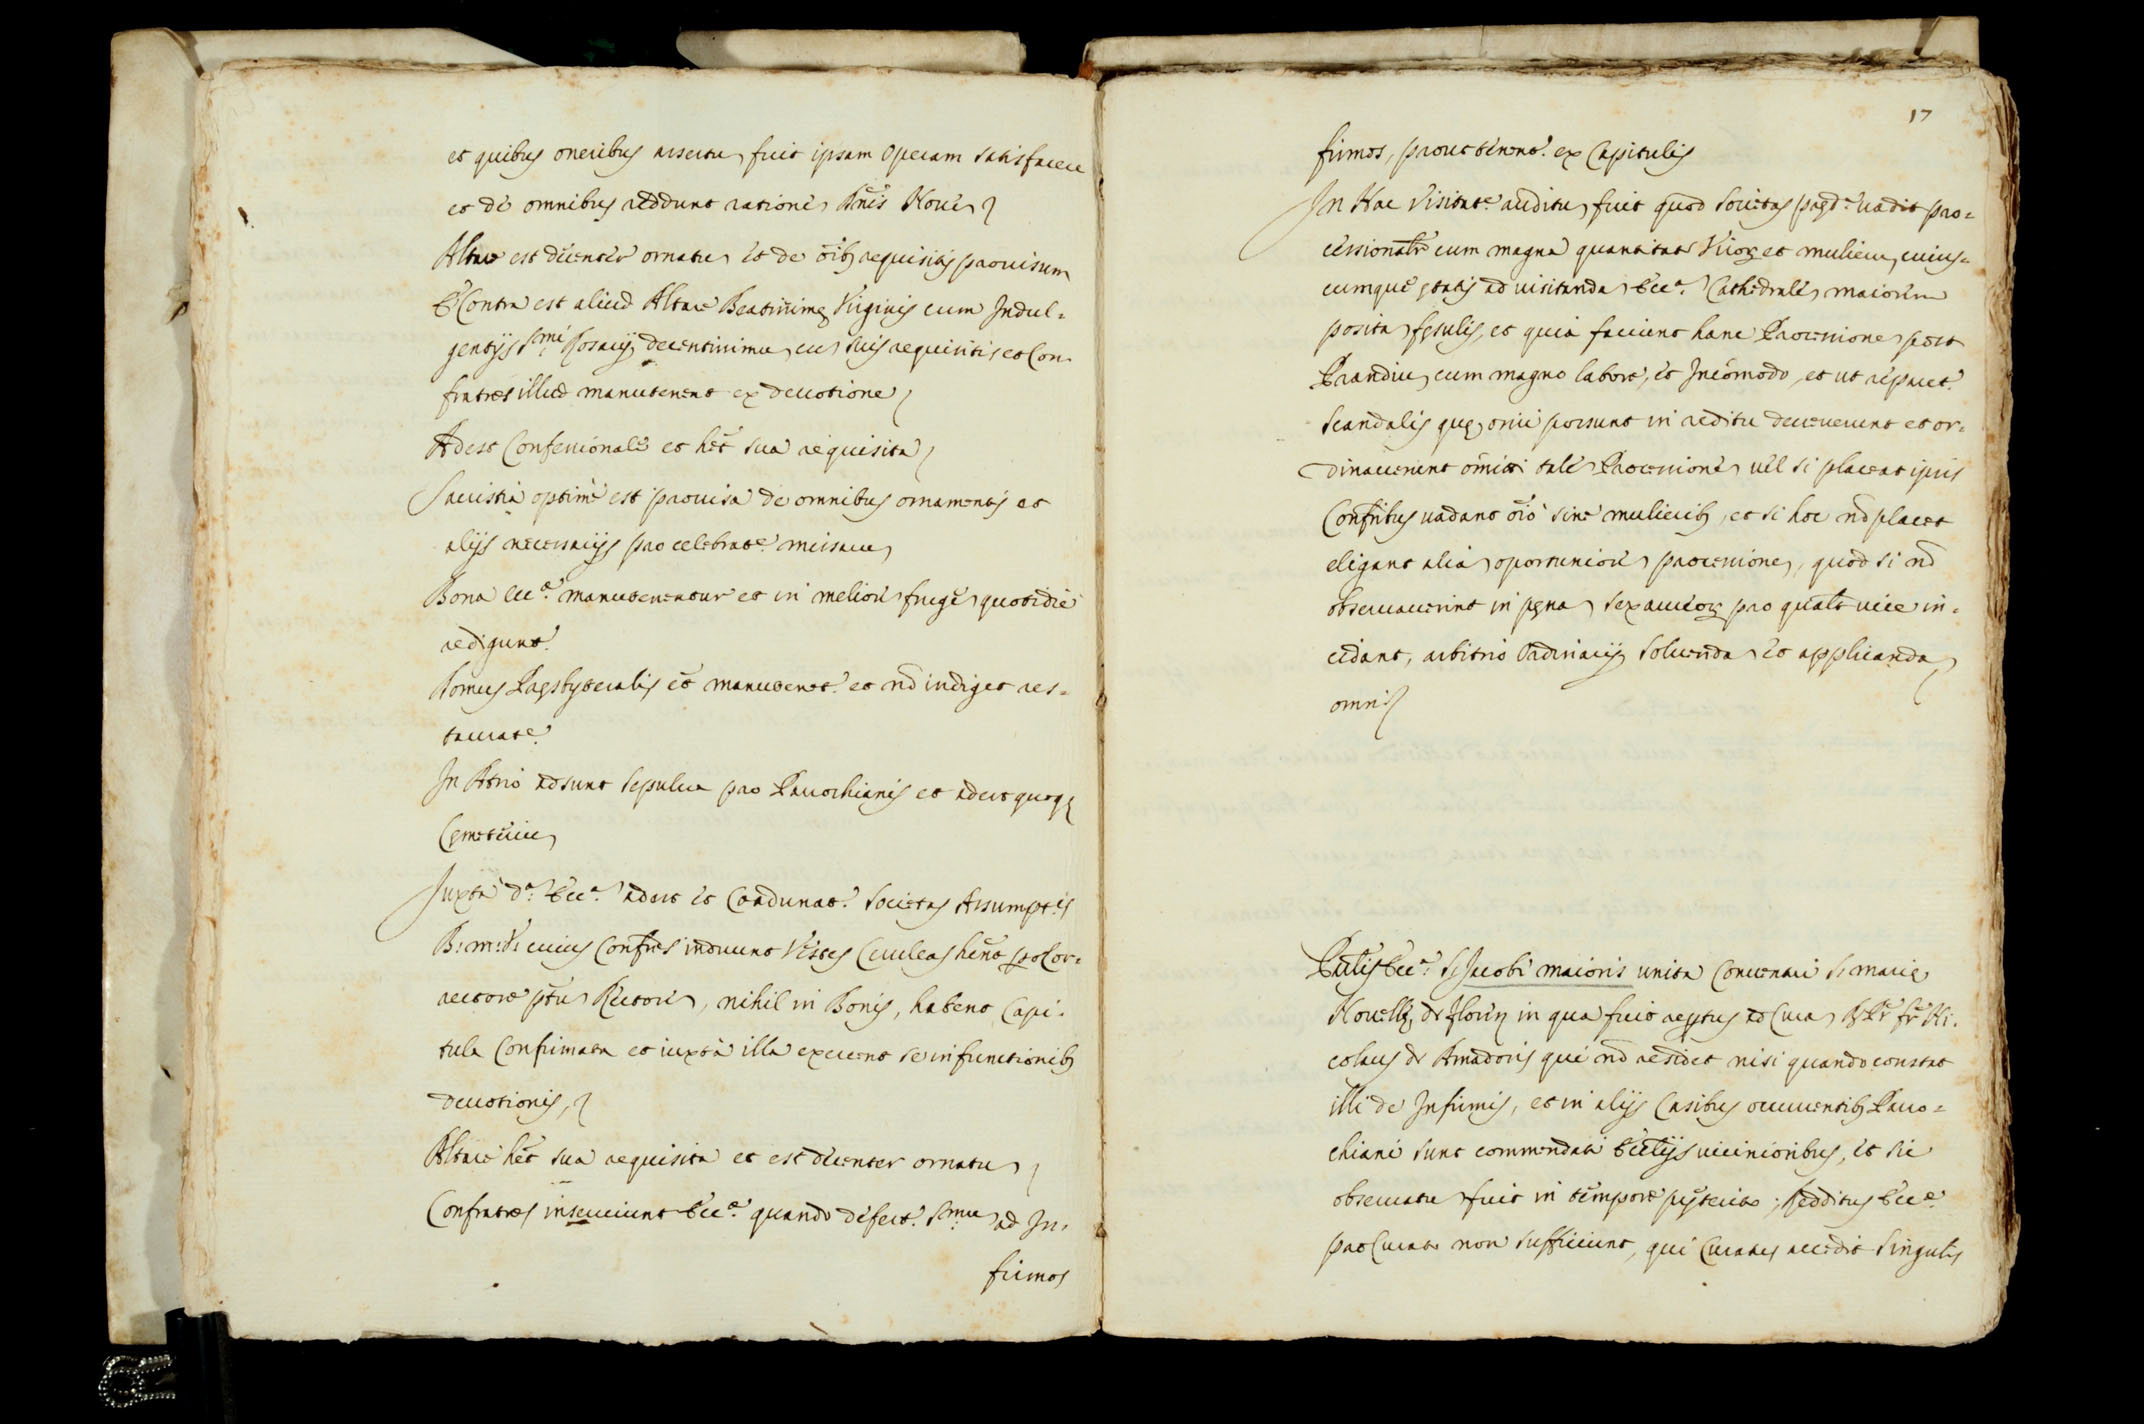 et quibus oneribus assertu fuit ipsam Operam satisfacere
et de omnibus reddunt ratione Dnis Nove
Altare est decenter ornatu et de oibus requisitis provisum
E Contra est aliud Altare Beatissime Virginis cum Indul=
gentijs Smi Rosarij decentissimu cu suis requisitis et Con-
fratres illud manutenent ex devotione
Adest Confessionale et het sua requisita
Sacristia optime est provisa de omnibus ornamentis et
alijs necessarijs pro celebrate. missaru
Bona Ecce. manutenentur et in meliore fruge quotidie
redigunt.
Domus Presbyteralis et manutenet. et no indiget res=
taurate.
In Atrio adsunt sepulcra pro Parochianis et adest quoque
Cemeteriu
Juxta da. Ecca. adest et Coadunat. Societas Assumptis
B: M: V: cuius Confres induunt Vestes Ceruleas hent pro Cor=
rectore ptu Rectore, nihil in Bonis, habent Capi.
tula Confirmata et iuxta illa exercent se in functionibus
devotionis,
Altare het sua requisita et est decenter ornatu
Confratres inserviunt Ecce. quando defert. Smu ad In,
firmos
17
firmos, prout tenent. ex Capitulis
In Hac visitate. auditu fuit quod Societas pred.e vadit pro=
cessionalr cum magna quantitate Viror et mulieru cuius=
cumque etatis ad visitanda Ecca. Cathedrale maiorem
posita Fesulis, et quia faciunt hanc Processione post
Prandiu cum magno labore, et Incomodo, et ut reparet.
Scandalis que oriri possunt in reditu decreverunt et or=
dinaverunt omitti tale Processione vel si placeat ipsis
Confribus vadant oio sine mulieribus, et si hoc no placet
eligant alia oportuniore processione, quod si no
observaverint in pena sex aureor pro qualt vice in=
cidant, arbitrio Ordinarij solvenda et applicanda
omni
Prlis Ecca. S. Jacobi maioris unita Conventui S. Marie
Novelle de Flore in qua fuit reptus ad Cura R. Pr. fr. Ni.
colaus de Amadoris qui no residet nisi quando constat
illi de Infirmis, et in alijs Casibus occurrentibus Paro=
chiani sunt commendati Ecclijs vicinioribus, et sic
observatu fuit in tempore preterito; Redditus Ecce.
pro Curato non sufficiunt, qui Curatus accedit singulis